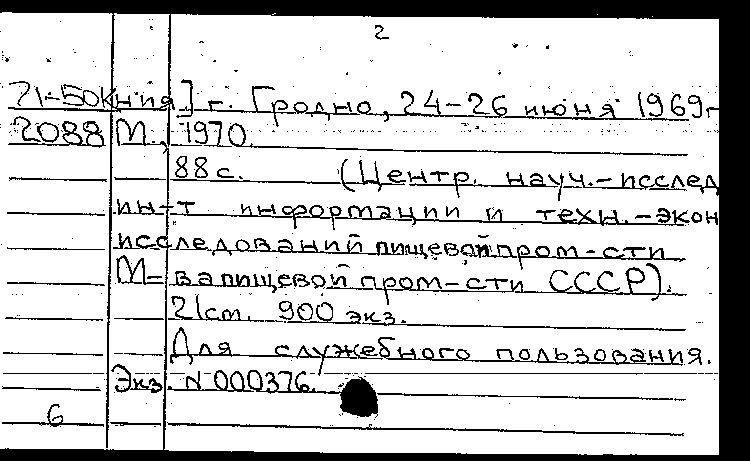 2
71-50кния] г. Гродно, 24-26 июня 1969г
2088 М., 1970.
88 с. (Центр. науч.-исслед
ин-т информации и техн.-экон
исследований пищевой пром-сти
М-ва пищевой пром-сти СССР).
21 см. 900 экз.
Для служебного пользования.
Экз. № 000376.
6